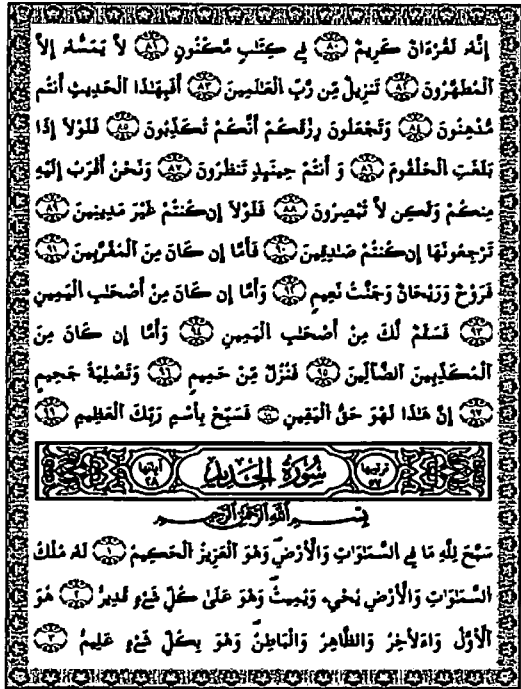 إِنَّهُۥ لَقُرْءَانٌ كَرِيمٌ ٨٠ فِي كِتَٰبٍ مَّكْنُونٍ ٨١ لاَّ يَمَسُّهُۥ إِلاَّ
اَلْمُطَهَّرُونَ ٨٢ تَنزِيلٌ مِّن رَّبِّ اِلْعَٰلَمِينَ ٨٣ أَفَبِهَٰذَا اَلْحَدِيثِ أَنتُم
مُّدْهِنُونَ ٨٤ وَتَجْعَلُونَ رِزْقَكُمْ أَنَّكُمْ تُكَذِّبُونَ ٨٥ فَلَوْلاَ إِذَا
بَلَغَتِ اِلْحُلْقُومَ ٨٦ وَ أَنتُمْ حِينَئِذٍ تَنظُرُونَ ٨٧ وَنَحْنُ أَقْرَبُ إِلَيْهِ
مِنكُمْ وَلَٰكِن لاَّ تُبْصِرُونَ ٨٨ فَلَوْلاَ إِن كُنتُمْ غَيْرَ مَدِينِينَ ٨٩
تَرْجِعُونَهَا إِن كُنتُمْ صَٰدِقِينَ ٩٠ فَأَمَّا إِن كَانَ مِنَ اَلْمُقَرَّبِينَ ٩١
فَرَوْحٌ وَرَيْحَانٌ وَجَنَّتُ نَعِيمٍ ٩٢ وَأَمَّا إِن كَانَ مِنْ أَصْحَٰبِ اِلْيَمِينِ
٩٣ فَسَلَٰمٌ لَّكَ مِنْ أَصْحَٰبِ اِلْيَمِينِ ٩٤ وَأَمَّا إِن كَانَ مِنَ
اَلْمُكَذِّبِينَ اَلضَّآلِّينَ ٩٥ فَنُزُلٌ مِّنْ حَمِيمٍ ٩٦ وَتَصْلِيَةُ جَحِيمٍ
٩٧ إِنَّ هَٰذَا لَهُوَ حَقُّ اُلْيَقِينِ ٩٨ فَسَبِّحْ بِاسْمِ رَبِّكَ اَلْعَظِيمِ ٩٩
ترتيبها ٥٧ سُورَةُ الْحَدِيدِ آياتها ٢٨
بِسْمِ اللَّهِ الرَّحْمَٰنِ الرَّحِيمِ
سَبَّحَ لِلهِ مَا فِي اِلسَّمَٰوَٰتِ وَالْأَرْضِ وَهُوَ اَلْعَزِيزُ اُلْحَكِيمُ ١ لَهُۥ مُلْكُ
اُلسَّمَٰوَٰتِ وَالْأَرْضِ يُحْيِۦ وَيُمِيتُ وَهُوَ عَلَىٰ كُلِّ شَيْءٍ قَدِيرٌ ٢ هُوَ
اَلْأَوَّلُ وَالْأَخِرُ وَالظَّٰهِرُ وَالْبَاطِنُ وَهُوَ بِكُلِّ شَيْءٍ عَلِيمٌ ٣